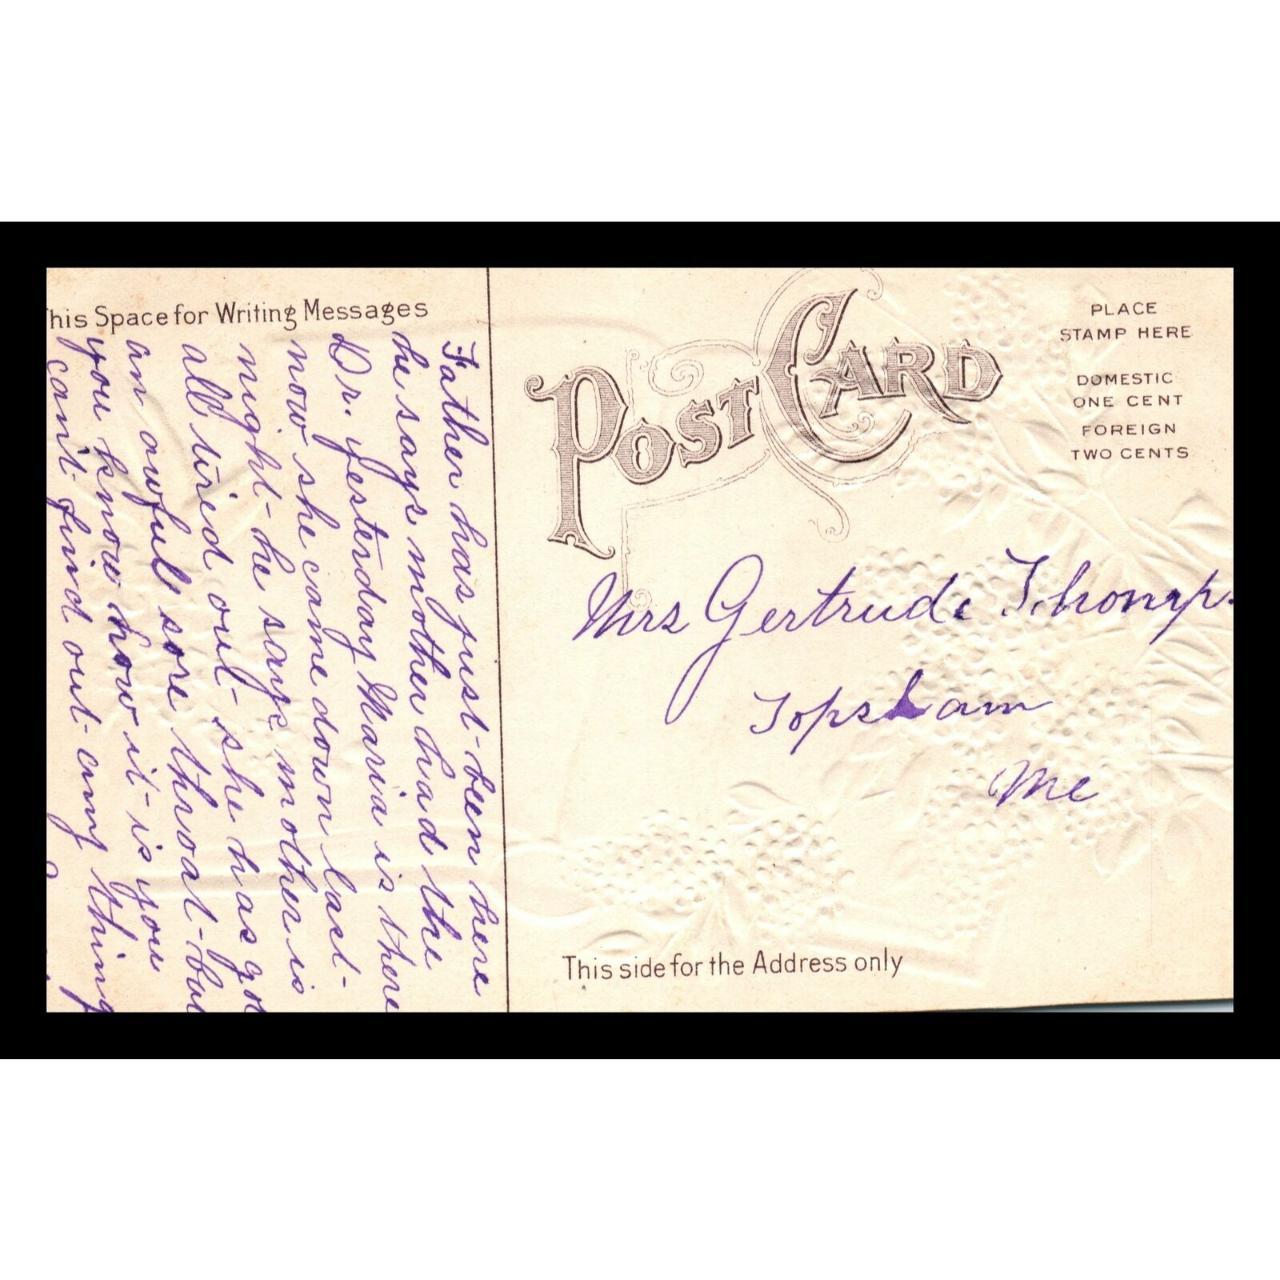 his Space for Writing Messages
Father has just been here
he says mother had the
Dr. yesterday Maria is there
now she came down last
night he says mother is
all tired out she has got
an awful sore throat but
you know how it is you
cant find out any thing
POST CARD
PLACE
STAMP HERE
DOMESTIC
ONE CENT
FOREIGN
TWO CENTS
Mrs Gertrude Thomp.
Topsham
Me
This side for the Address only